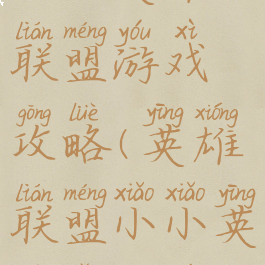 lián méng yóu xì
联盟游戏
gōng lüè yīng xióng
攻略(英雄
lián méng xiǎo xiǎo yīng
联盟小小英